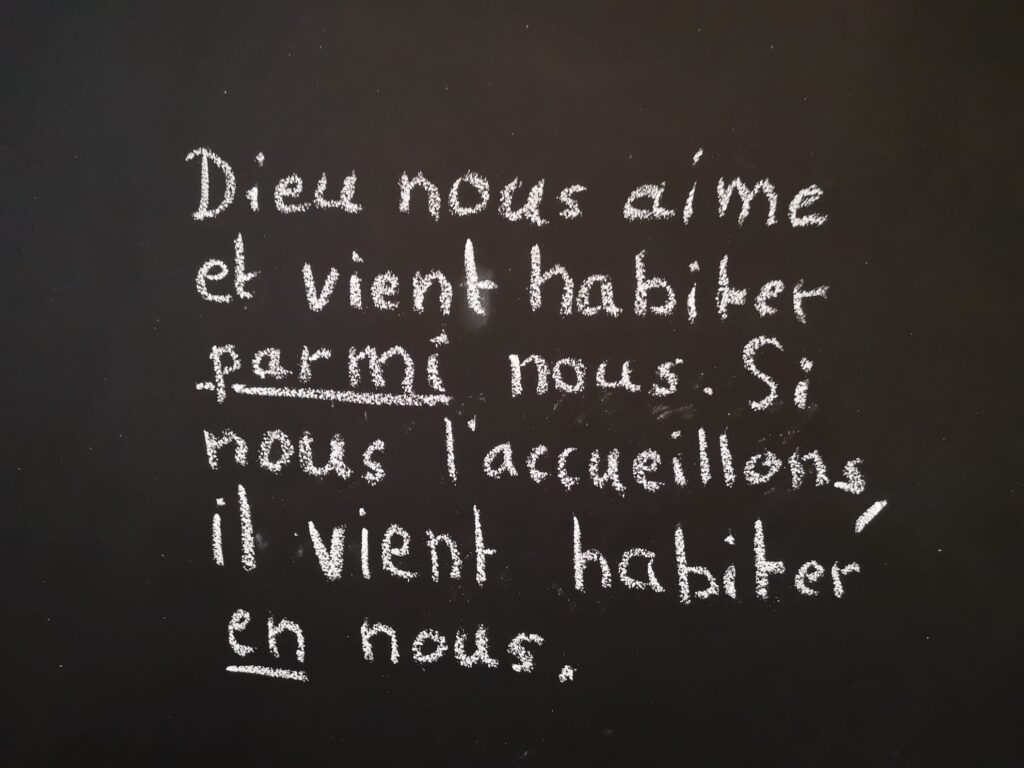 Dieu nous aime
et vient habiter
parmi nous. Si
nous l'accueillons,
il vient habiter
en nous.